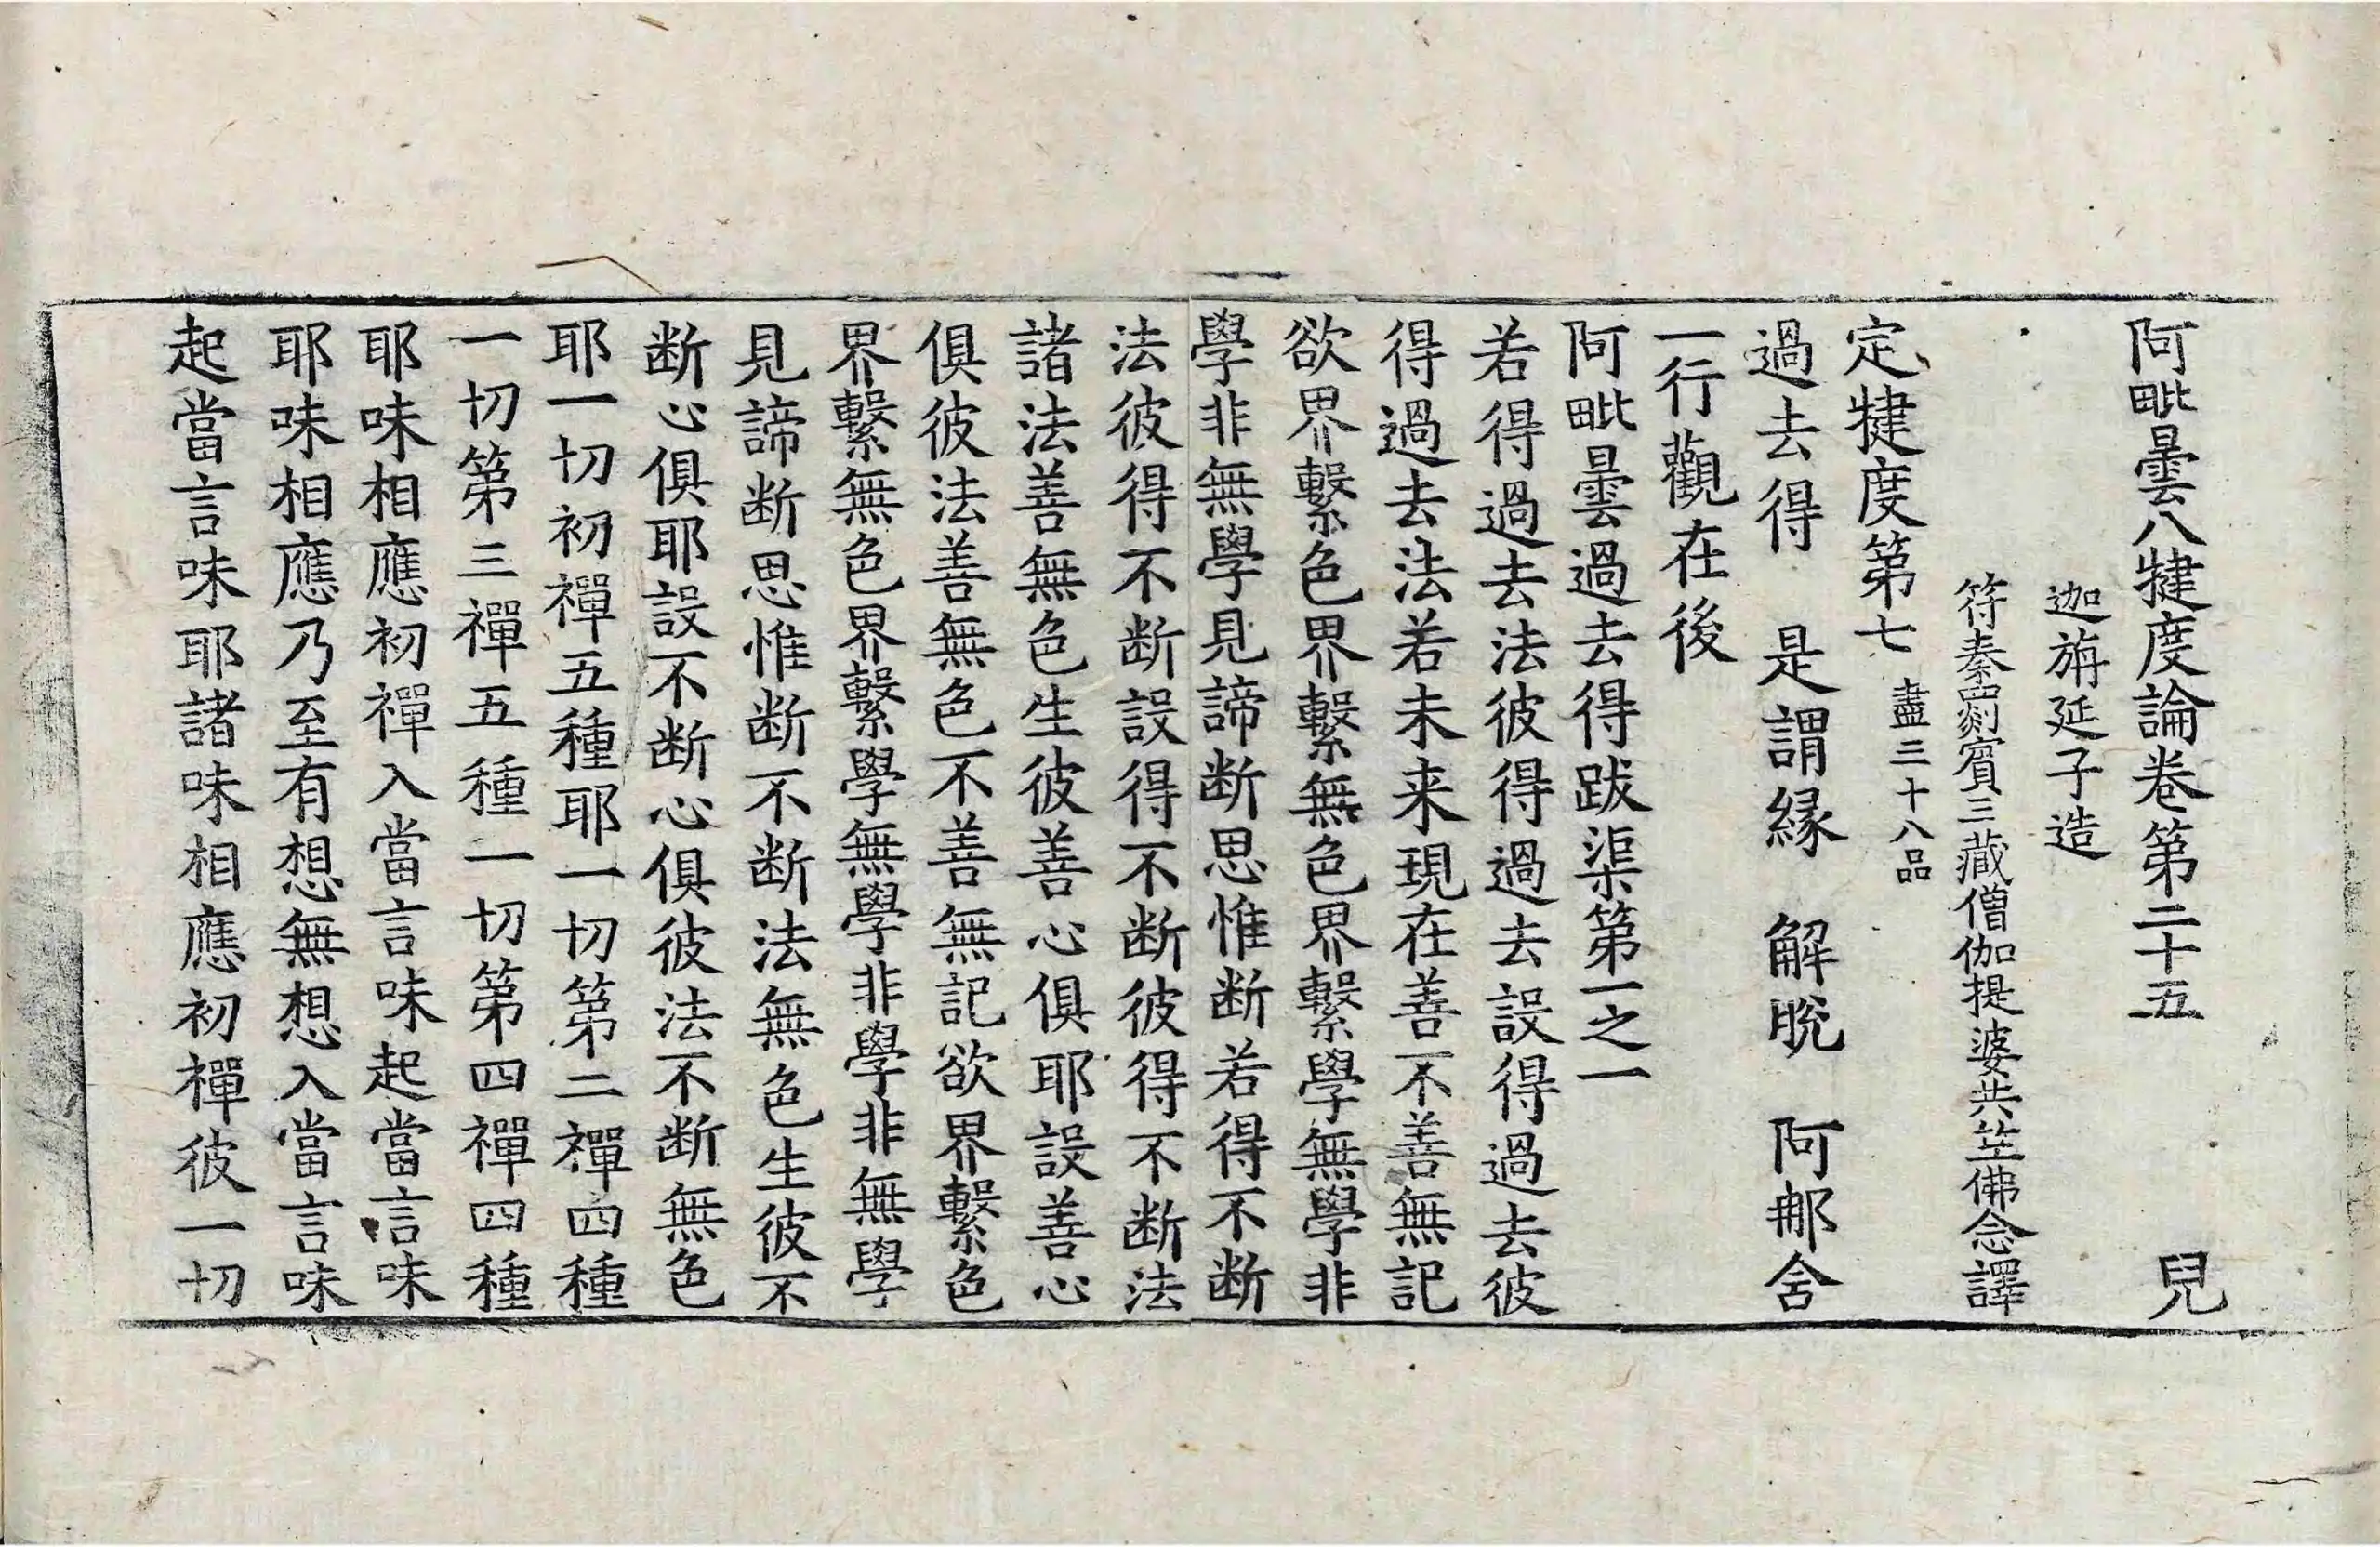 阿毗曇八犍度論卷第二十五 兒
迦旃延子造
符秦罽賓三藏僧伽提婆共笁佛念譯
定犍度第七 盡三十八品
過去得 是謂緣 解脫 阿那舍
一行觀在後
阿毗曇過去得跋渠第一之一
若得過去法彼得過去設得過去彼
得過去法若未来現在善不善無記
欲界繫色界繫無色界繫學無學非
學非無學見諦断思惟断若得不断
法彼得不断設得不断彼得不断法
諸法善無色生彼善心俱耶設善心
俱彼法善無色不善無記欲界繫色
界繫無色界繫學無學非學非無學
見諦断思惟断不断法無色生彼不
断心俱耶設不断心俱彼法不断無色
耶一切初禪五種耶一切第二禪四種
一切第三禪五種一切第四禪四種
耶味相應初禪入當言味起當言味
耶味相應乃至有想無想入當言味
起當言味耶諸味相應初禪彼一切